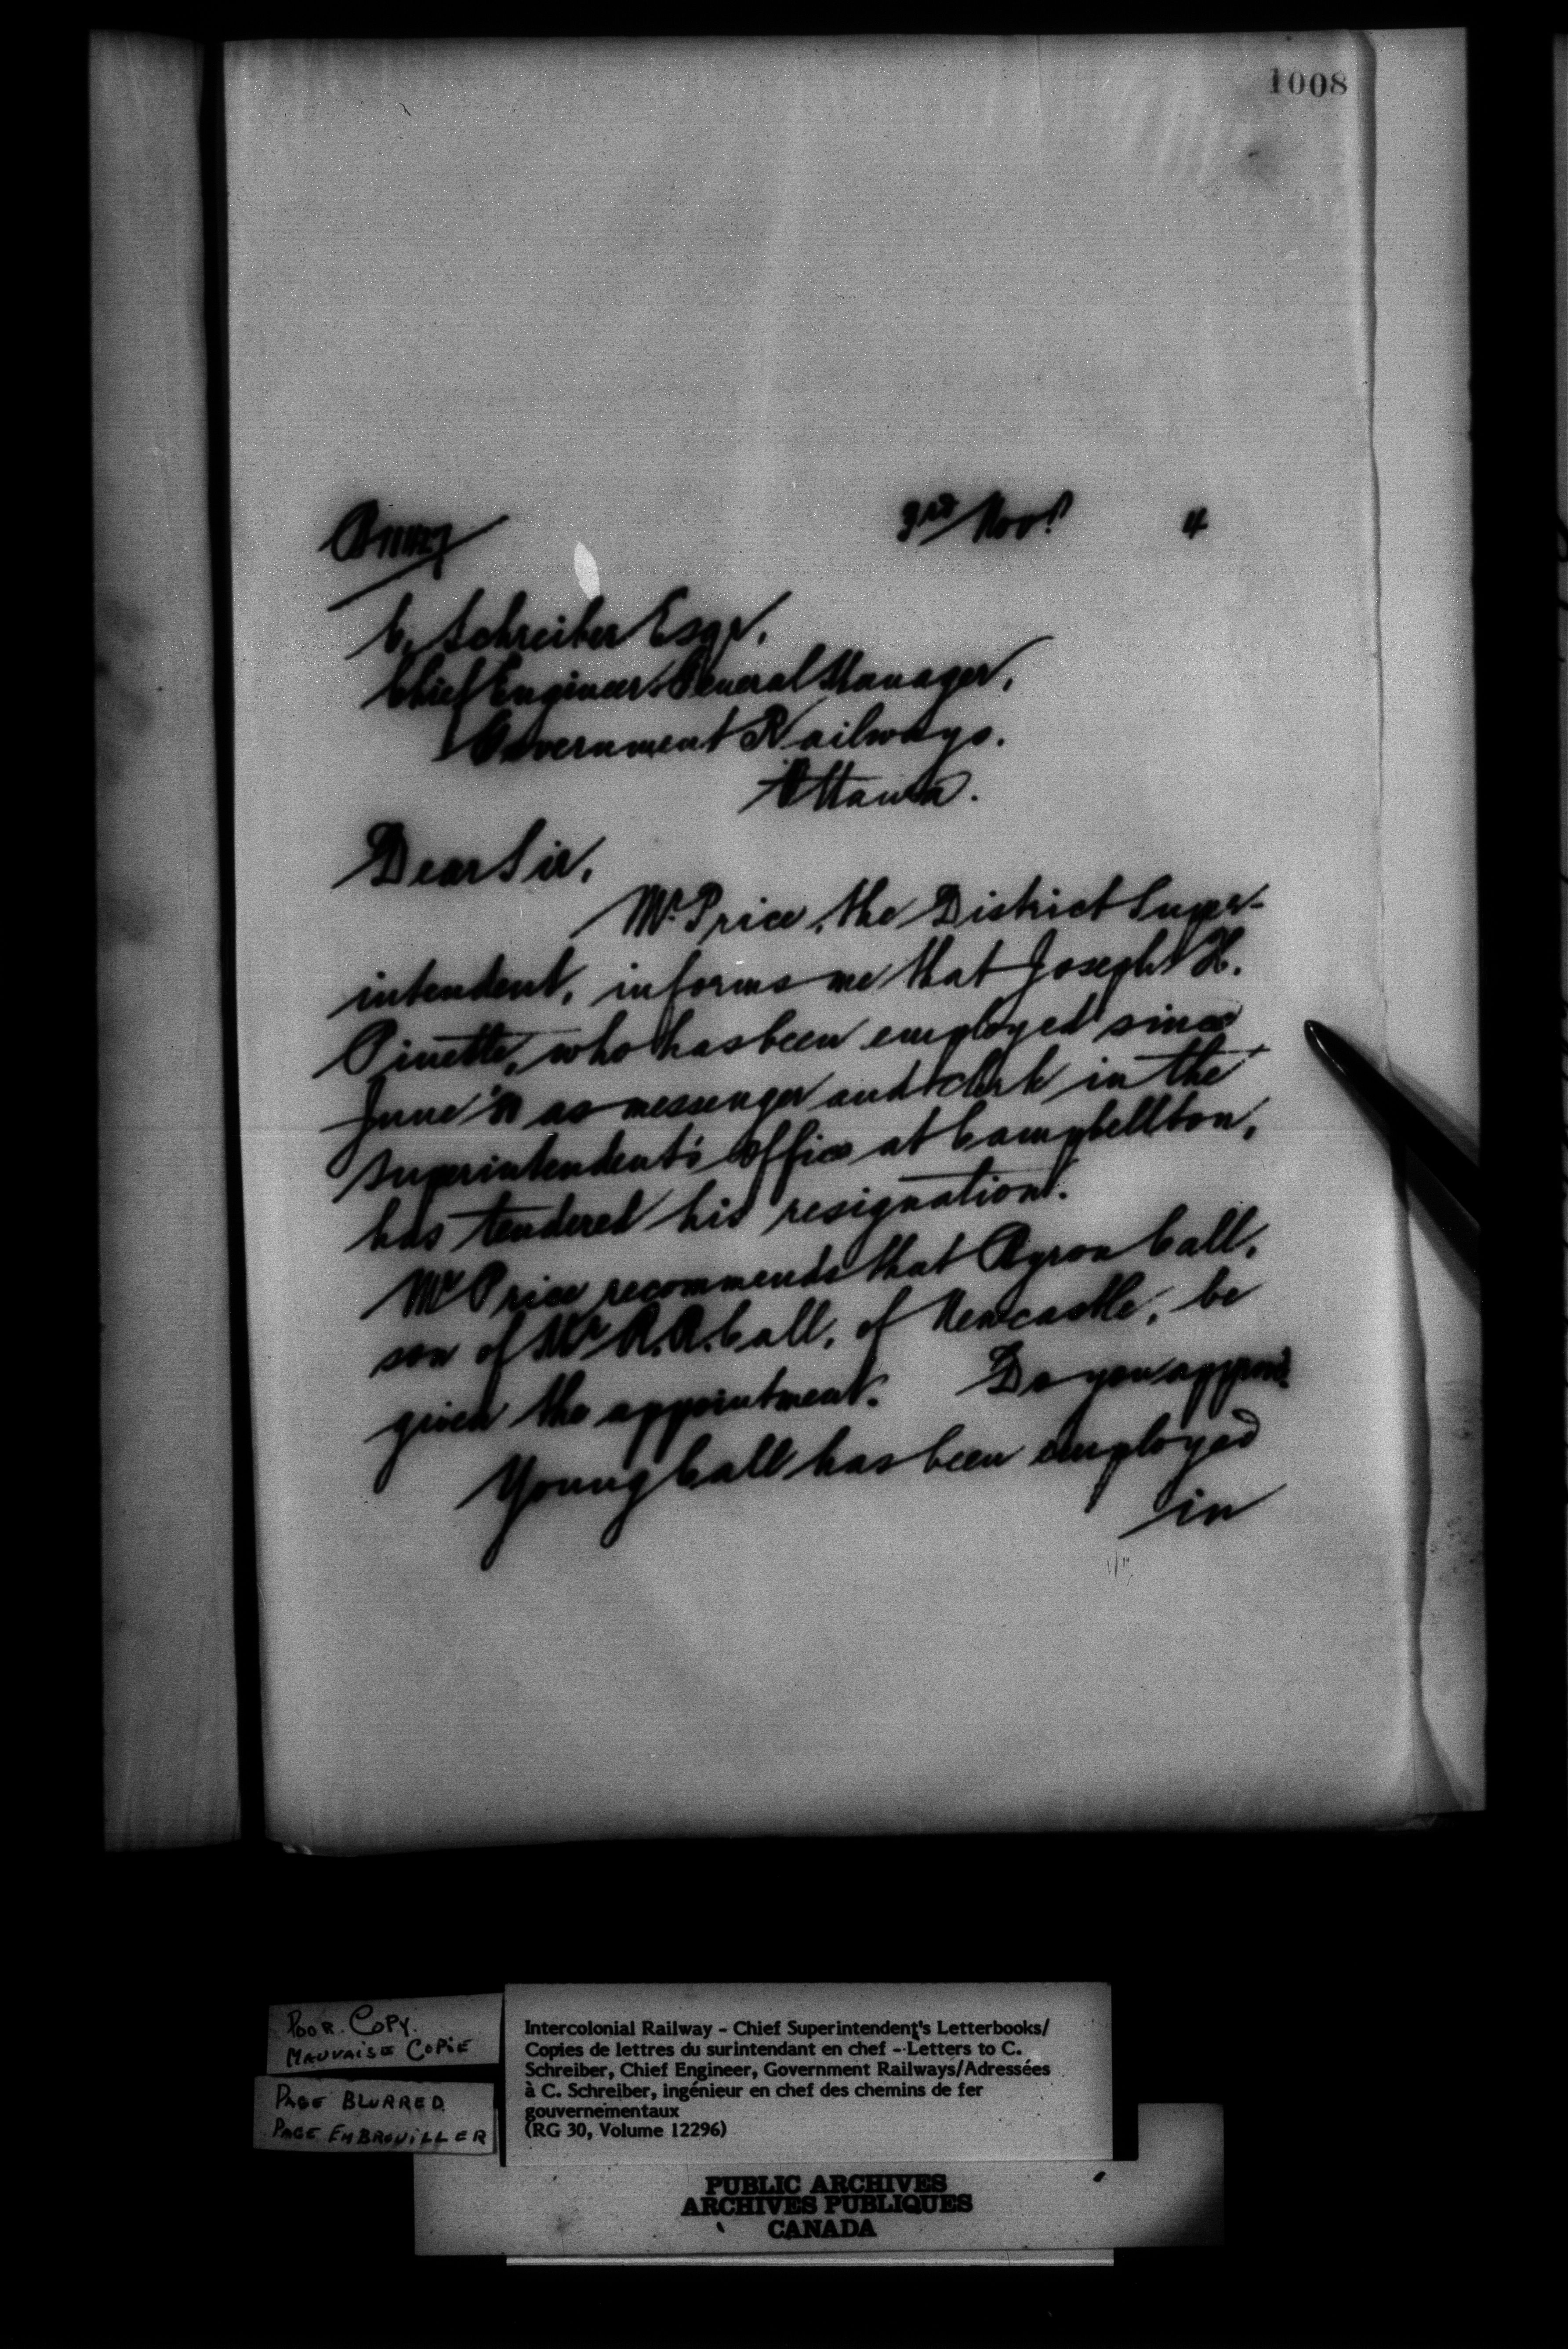 1008
3rd Novr 4
C. Schreiber Esqr.
Chief Engineer & General Manager,
Government Railways.
Ottawa.
Dear Sir,
Mr Price, the District Super-
intendent, informs me that Joseph H.
Pinette, who has been employed since
June as messenger and clerk in the
Superintendent's Office at Campbellton,
has tendered his resignation.
Mr Price recommends that Byron Call,
son of Mr R.R. Call, of Newcastle, be
given the appointment. Do you approve?
Young Call has been employed
in
POOR COPY.
MAUVAISE COPIE
PAGE BLURRED
PAGE EMBROUILLER
Intercolonial Railway - Chief Superintendent's Letterbooks/
Copies de lettres du surintendant en chef - Letters to C.
Schreiber, Chief Engineer, Government Railways/Adressées
à C. Schreiber, ingénieur en chef des chemins de fer
gouvernementaux
(RG 30, Volume 12296)
PUBLIC ARCHIVES
ARCHIVES PUBLIQUES
CANADA